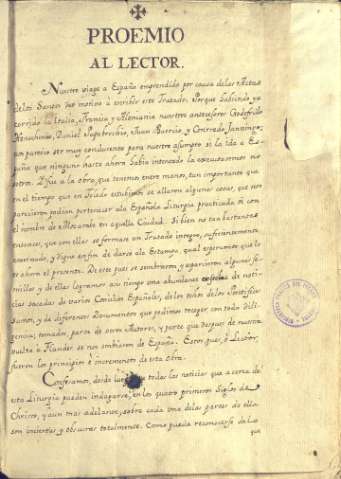 PROEMIO
AL LECTOR.
Nuestro viage a España emprendido por causa de las Actas
de los Santos dio motivo à escribir este Tratado. Porque habiendo ya
corrido la Italia, Francia y Alemania nuestros antecesores Godefrido
Henschenio, Daniel Papebrochio, Juan Bautista y Conrrado Janningo;
un parecio ser muy conducente para nuestro assumpto si la Ida a Es-
paña que ninguno hasta ahora habia intentado la executasemos no-
otros. Y fue a la obra, que tenemos entre manos, tan importante que
en el tiempo que en Toledo estubimos se allaron algunas cosas, que nos
parecieron podian pertenecer ala Española Liturgia practicada si con
el nombre de Mozarabe en aquella Ciudad. Si bien no tan bastantes
entonces, que con ellas se formase un Tratado integro, suficientemente
continuado, y digno en fin de darse ala Estampa, qual esperamos que lo
es ahora el presente. De este pues se sembraron, y esparcieron algunas se-
millas y de ellas logramos asu tiempo una abundante cosecha de noti-
cias sacadas de varios Concilios Españoles, de los de los Pontifices
Sumos, y de diferentes Documentos que pudimos recoger con todo dili-
gencia; tomados, parte de otros Autores, y parte que despues de nuestra
vuelta à Flandes se nos embiaron de España. Estos pues, ò Lector,
fueron los principios è incrementos de esta Obra.
Confesamos, desde luego todas las noticias que a cerca de
esta Liturgia pueden indagarse, en los quatro primeros Siglos de
Christo, y aun mas adelante, sobre cada una delas partes de ella
son inciertas y obscuras totalmente. Como puede reconocerse de lo
que